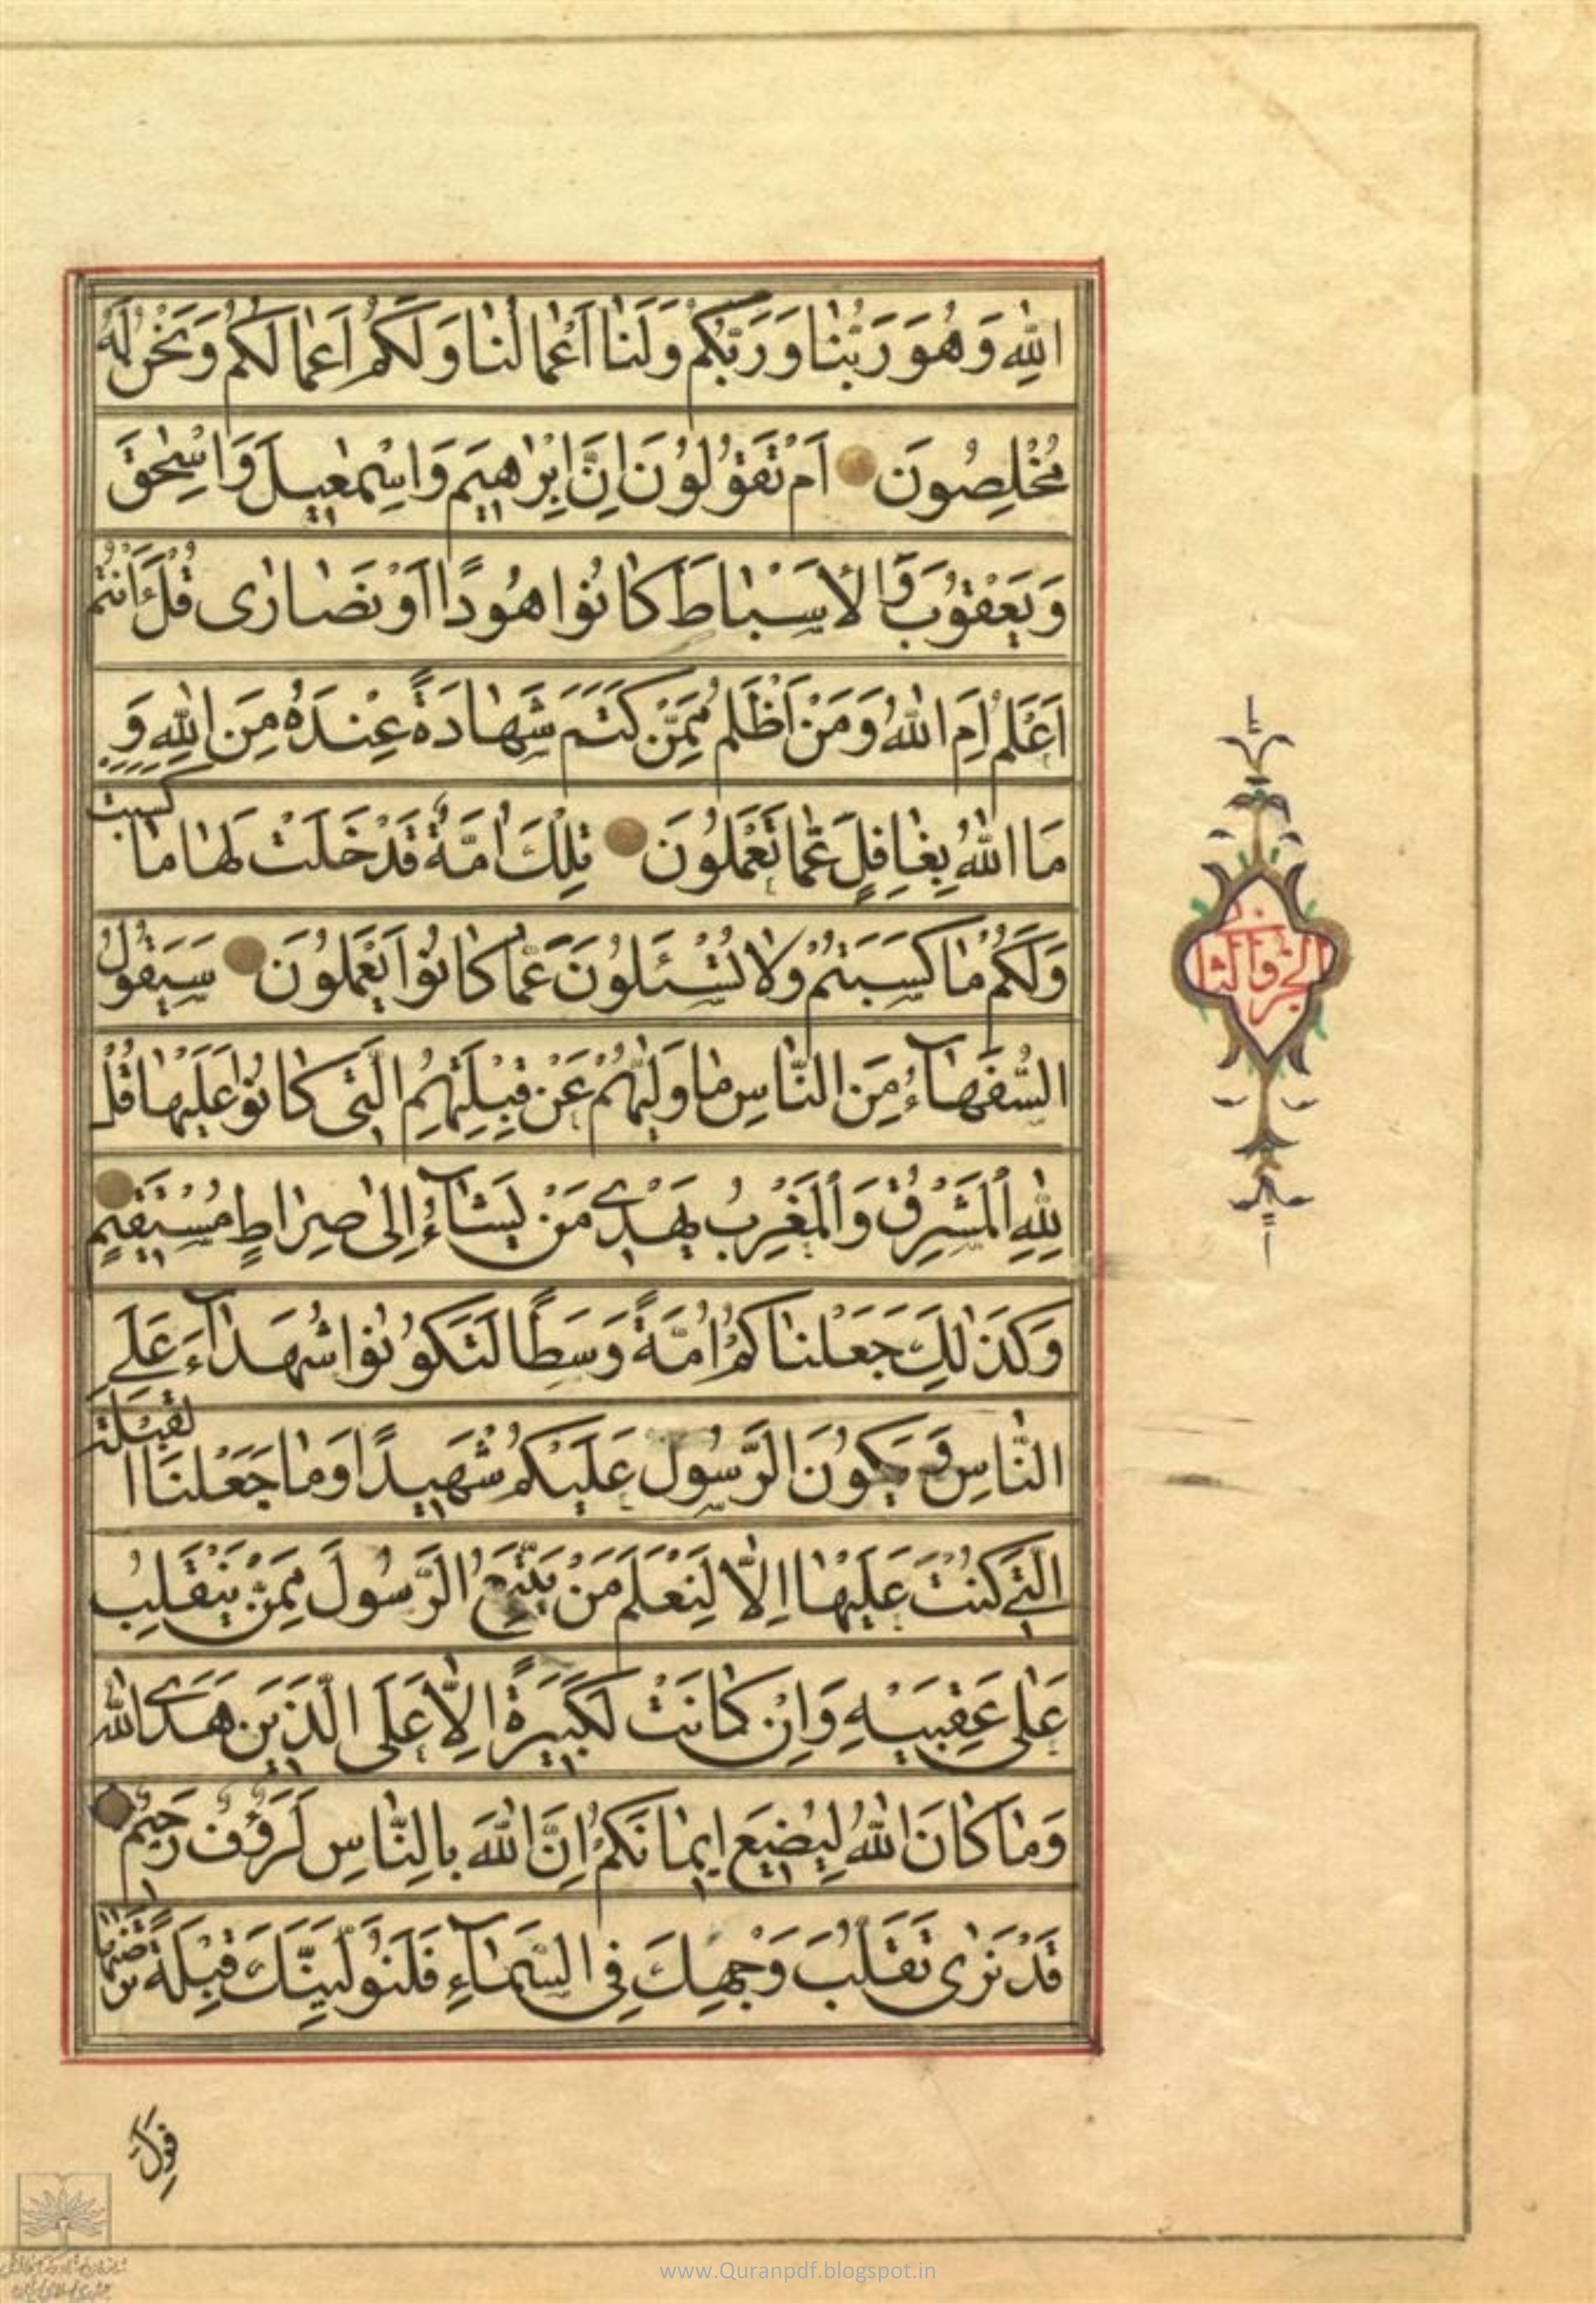 اللهِ وَهُوَ رَبُّنا وَرَبُّكُمْ وَلَنا اَعْمالُنا وَلَكُمْ اَعمالُكُمْ وَنَحْنُ لَهُ
مُخْلِصُونَ اَمْ تَقُولُونَ اِنَّ اِبْراهيمَ وَاِسْمٰعيلَ وَاِسْحٰقَ
وَيَعْقُوبَ وَالْاَسْباطَ كانُوا هُودًا اَوْ نَصارٰى قُلْ ءَاَنْتُمْ
اَعْلَمُ اَمِ اللهُ وَمَنْ اَظْلَمُ مِمَّنْ كَتَمَ شَهادَةً عِنْدَهُ مِنَ اللهِ وَ
مَا اللهُ بِغافِلٍ عَمّا تَعْمَلُونَ تِلْكَ اُمَّةٌ قَدْ خَلَتْ لَها ما كَسَبَتْ
وَلَكُمْ ما كَسَبْتُمْ وَلا تُسْئَلُونَ عَمّا كانُوا يَعْمَلُونَ سَيَقُولُ
السُّفَهآءُ مِنَ النّاسِ ما وَلّٰيهُمْ عَنْ قِبْلَتِهِمُ الَّتى كانُوا عَلَيْها قُلْ
لِلّٰهِ الْمَشْرِقُ وَالْمَغْرِبُ يَهْدى مَنْ يَشآءُ اِلى صِراطٍ مُسْتَقيمٍ
وَكَذٰلِكَ جَعَلْناكُمْ اُمَّةً وَسَطًا لِتَكُونُوا شُهَدآءَ عَلَى
النّاسِ وَيَكُونَ الرَّسُولُ عَلَيْكُمْ شَهيدًا وَما جَعَلْنَا الْقِبْلَةَ
الَّتى كُنْتَ عَلَيْها اِلّا لِنَعْلَمَ مَنْ يَتَّبِعُ الرَّسُولَ مِمَّنْ يَنْقَلِبُ
عَلى عَقِبَيْهِ وَاِنْ كانَتْ لَكَبيرَةً اِلّا عَلَى الَّذينَ هَدَى اللهُ
وَما كانَ اللهُ لِيُضيعَ ايمانَكُمْ اِنَّ اللهَ بِالنّاسِ لَرَؤُفٌ رَحيمٌ
قَدْ نَرى تَقَلُّبَ وَجْهِكَ فِى السَّمآءِ فَلَنُوَلِّيَنَّكَ قِبْلَةً تَرْضٰيها
فَوَلِّ
www.Quranpdf.blogspot.in